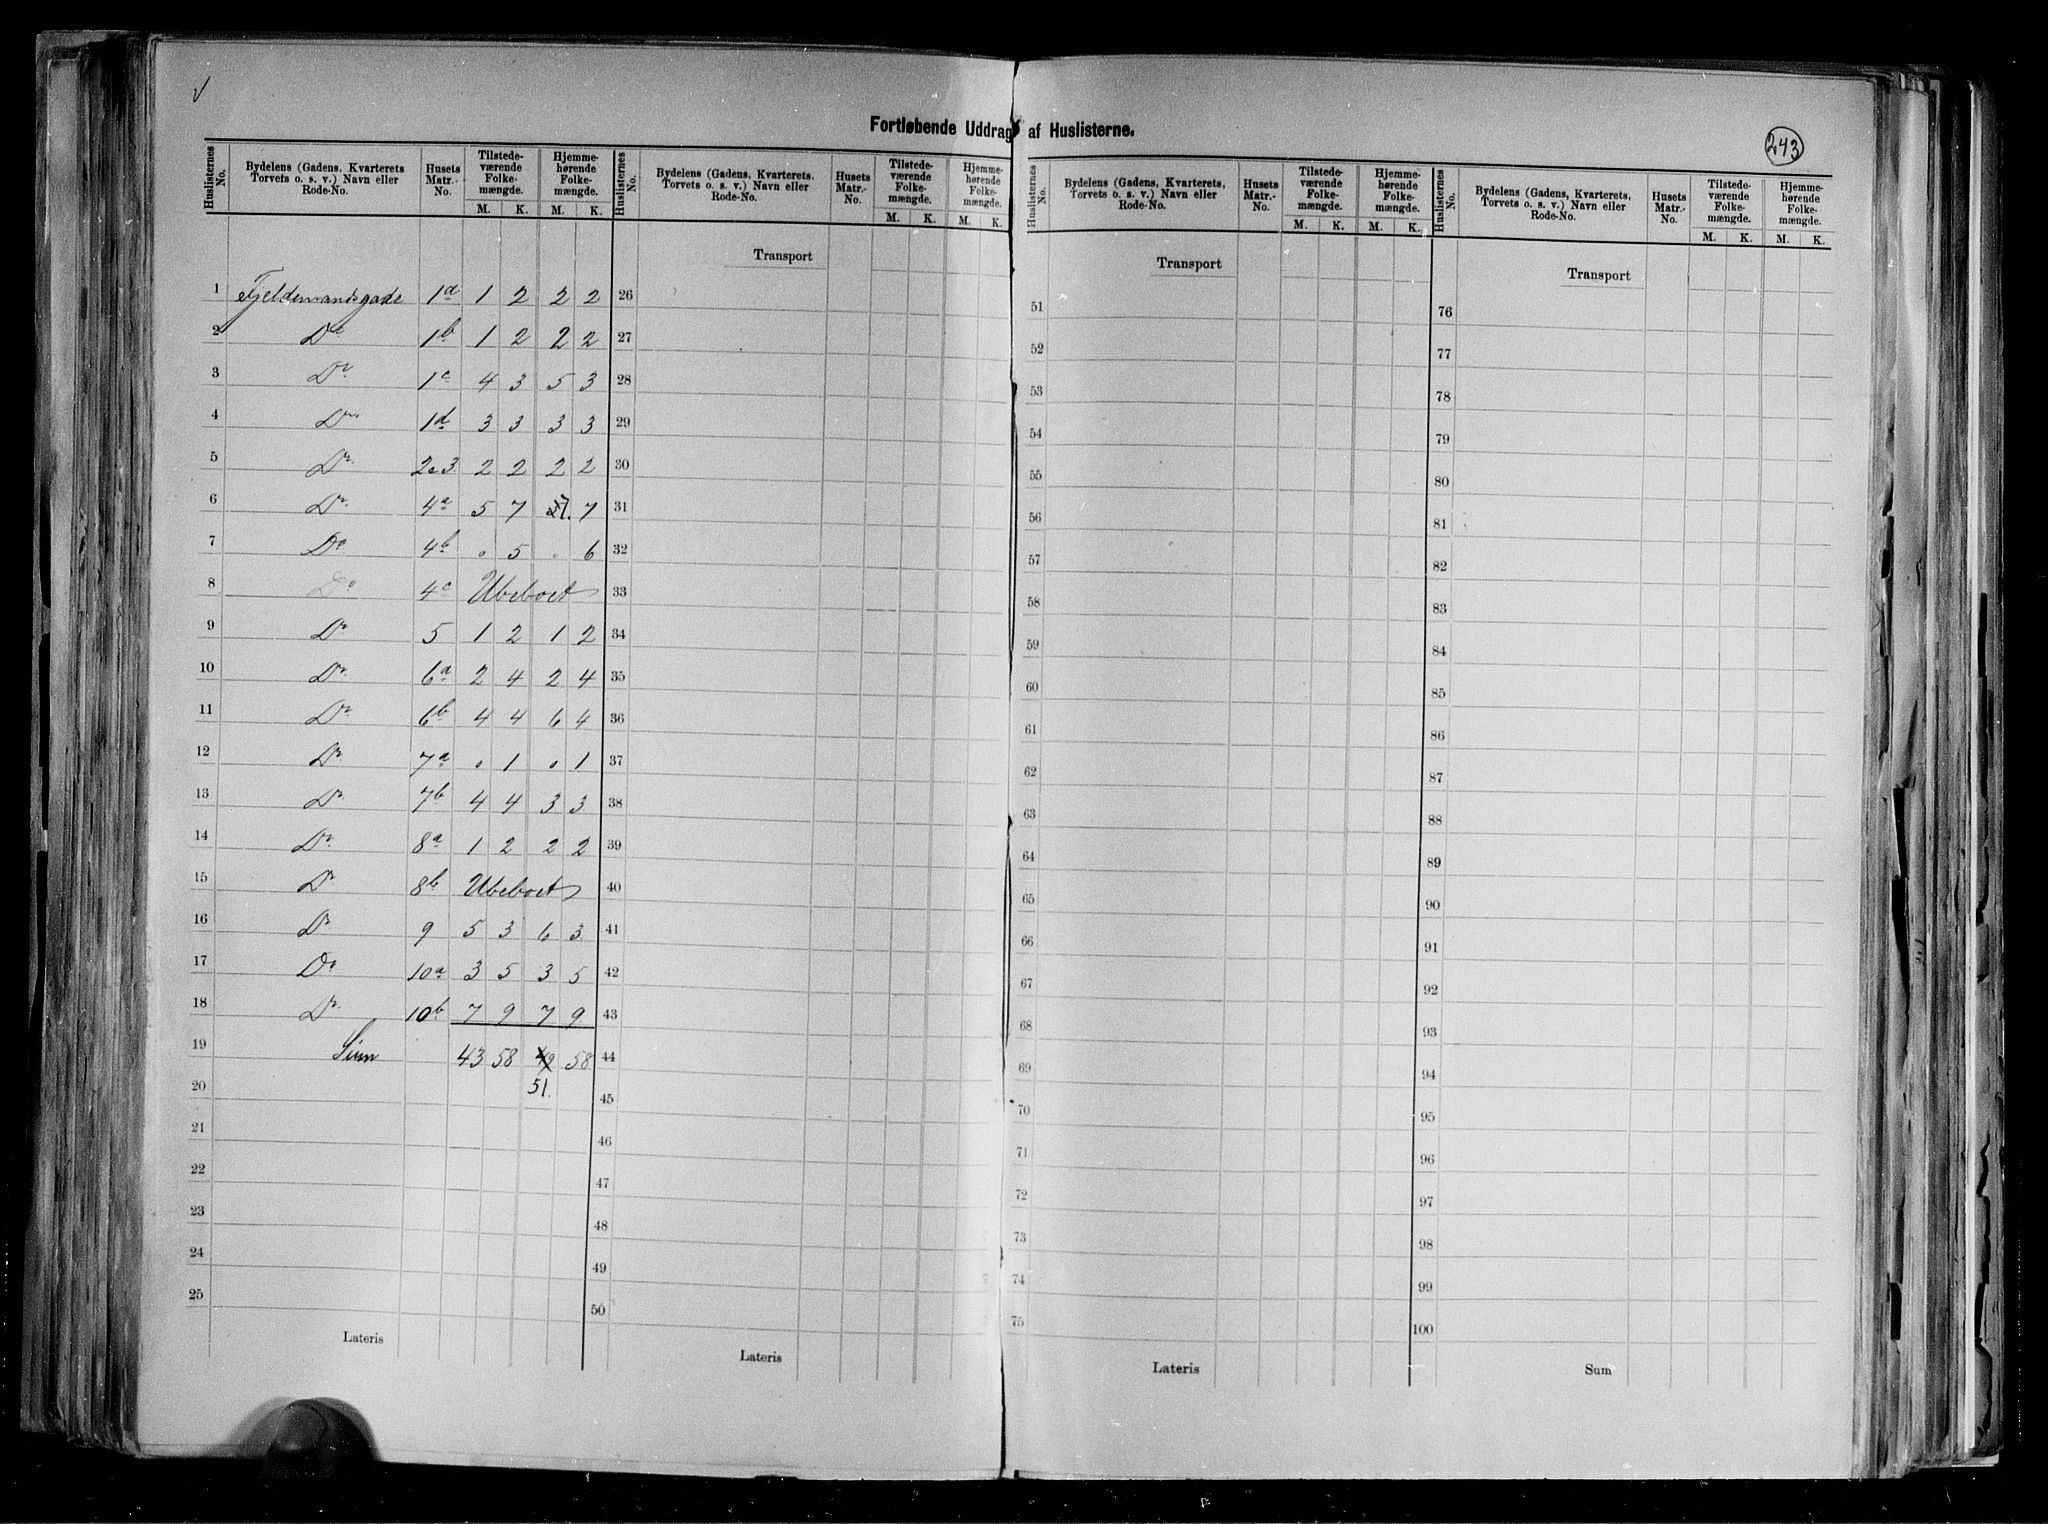 Fortløbende Uddrag af Huslisterne.
243
Huslisternes No. | Bydelens (Gadens, Kvarterets Torvets o. s. v.) Navn eller Rode-No. | Husets Matr.-No. | Tilstedeværende Folkemængde. M. K. | Hjemmehørende Folkemængde. M. K.
1 Fjeldemandsgade 1a 1 2 2 2
2 Do 1b 1 2 2 2
3 Do. 1c 4 3 5 3
4 Do 1d 3 3 3 3
5 Do. 2 & 3 2 2 2 2
6 Do. 4a 5 7 7. 7
7 Do 4b . 5 . 6
8 Do 4c Ubeboet
9 Do 5 1 2 1 2
10 Do. 6a 2 4 2 4
11 Do. 6b 4 4 6 4
12 Do 7a . 1 . 1
13 Do 7b 4 4 3 3
14 Do. 8a 1 2 2 2
15 Do 8b Ubeboet
16 Do 9 5 3 6 3
17 Do 10a 3 5 3 5
18 Do. 10b 7 9 7 9
19 Sum 43 58 49 58
20 51.
21
22
23
24
25
Lateris
Huslisternes No. | Bydelens (Gadens, Kvarterets, Torvets o. s. v.) Navn eller Rode-No. | Husets Matr.-No. | Tilstedeværende Folkemængde. M. K. | Hjemmehørende Folkemængde. M. K.
Transport
26
27
28
29
30
31
32
33
34
35
36
37
38
39
40
41
42
43
44
45
46
47
48
49
50
Lateris
Huslisternes No. | Bydelens (Gadens, Kvarterets, Torvets o. s. v.) Navn eller Rode-No. | Husets Matr.-No. | Tilstedeværende Folkemængde. M. K. | Hjemmehørende Folkemængde. M. K.
Transport
51
52
53
54
55
56
57
58
59
60
61
62
63
64
65
66
67
68
69
70
71
72
73
74
75
Lateris
Huslisternes No. | Bydelens (Gadens, Kvarterets, Torvets o. s. v.) Navn eller Rode-No. | Husets Matr.-No. | Tilstedeværende Folkemængde. M. K. | Hjemmehørende Folkemængde. M. K.
Transport
76
77
78
79
80
81
82
83
84
85
86
87
88
89
90
91
92
93
94
95
96
97
98
99
100
Sum